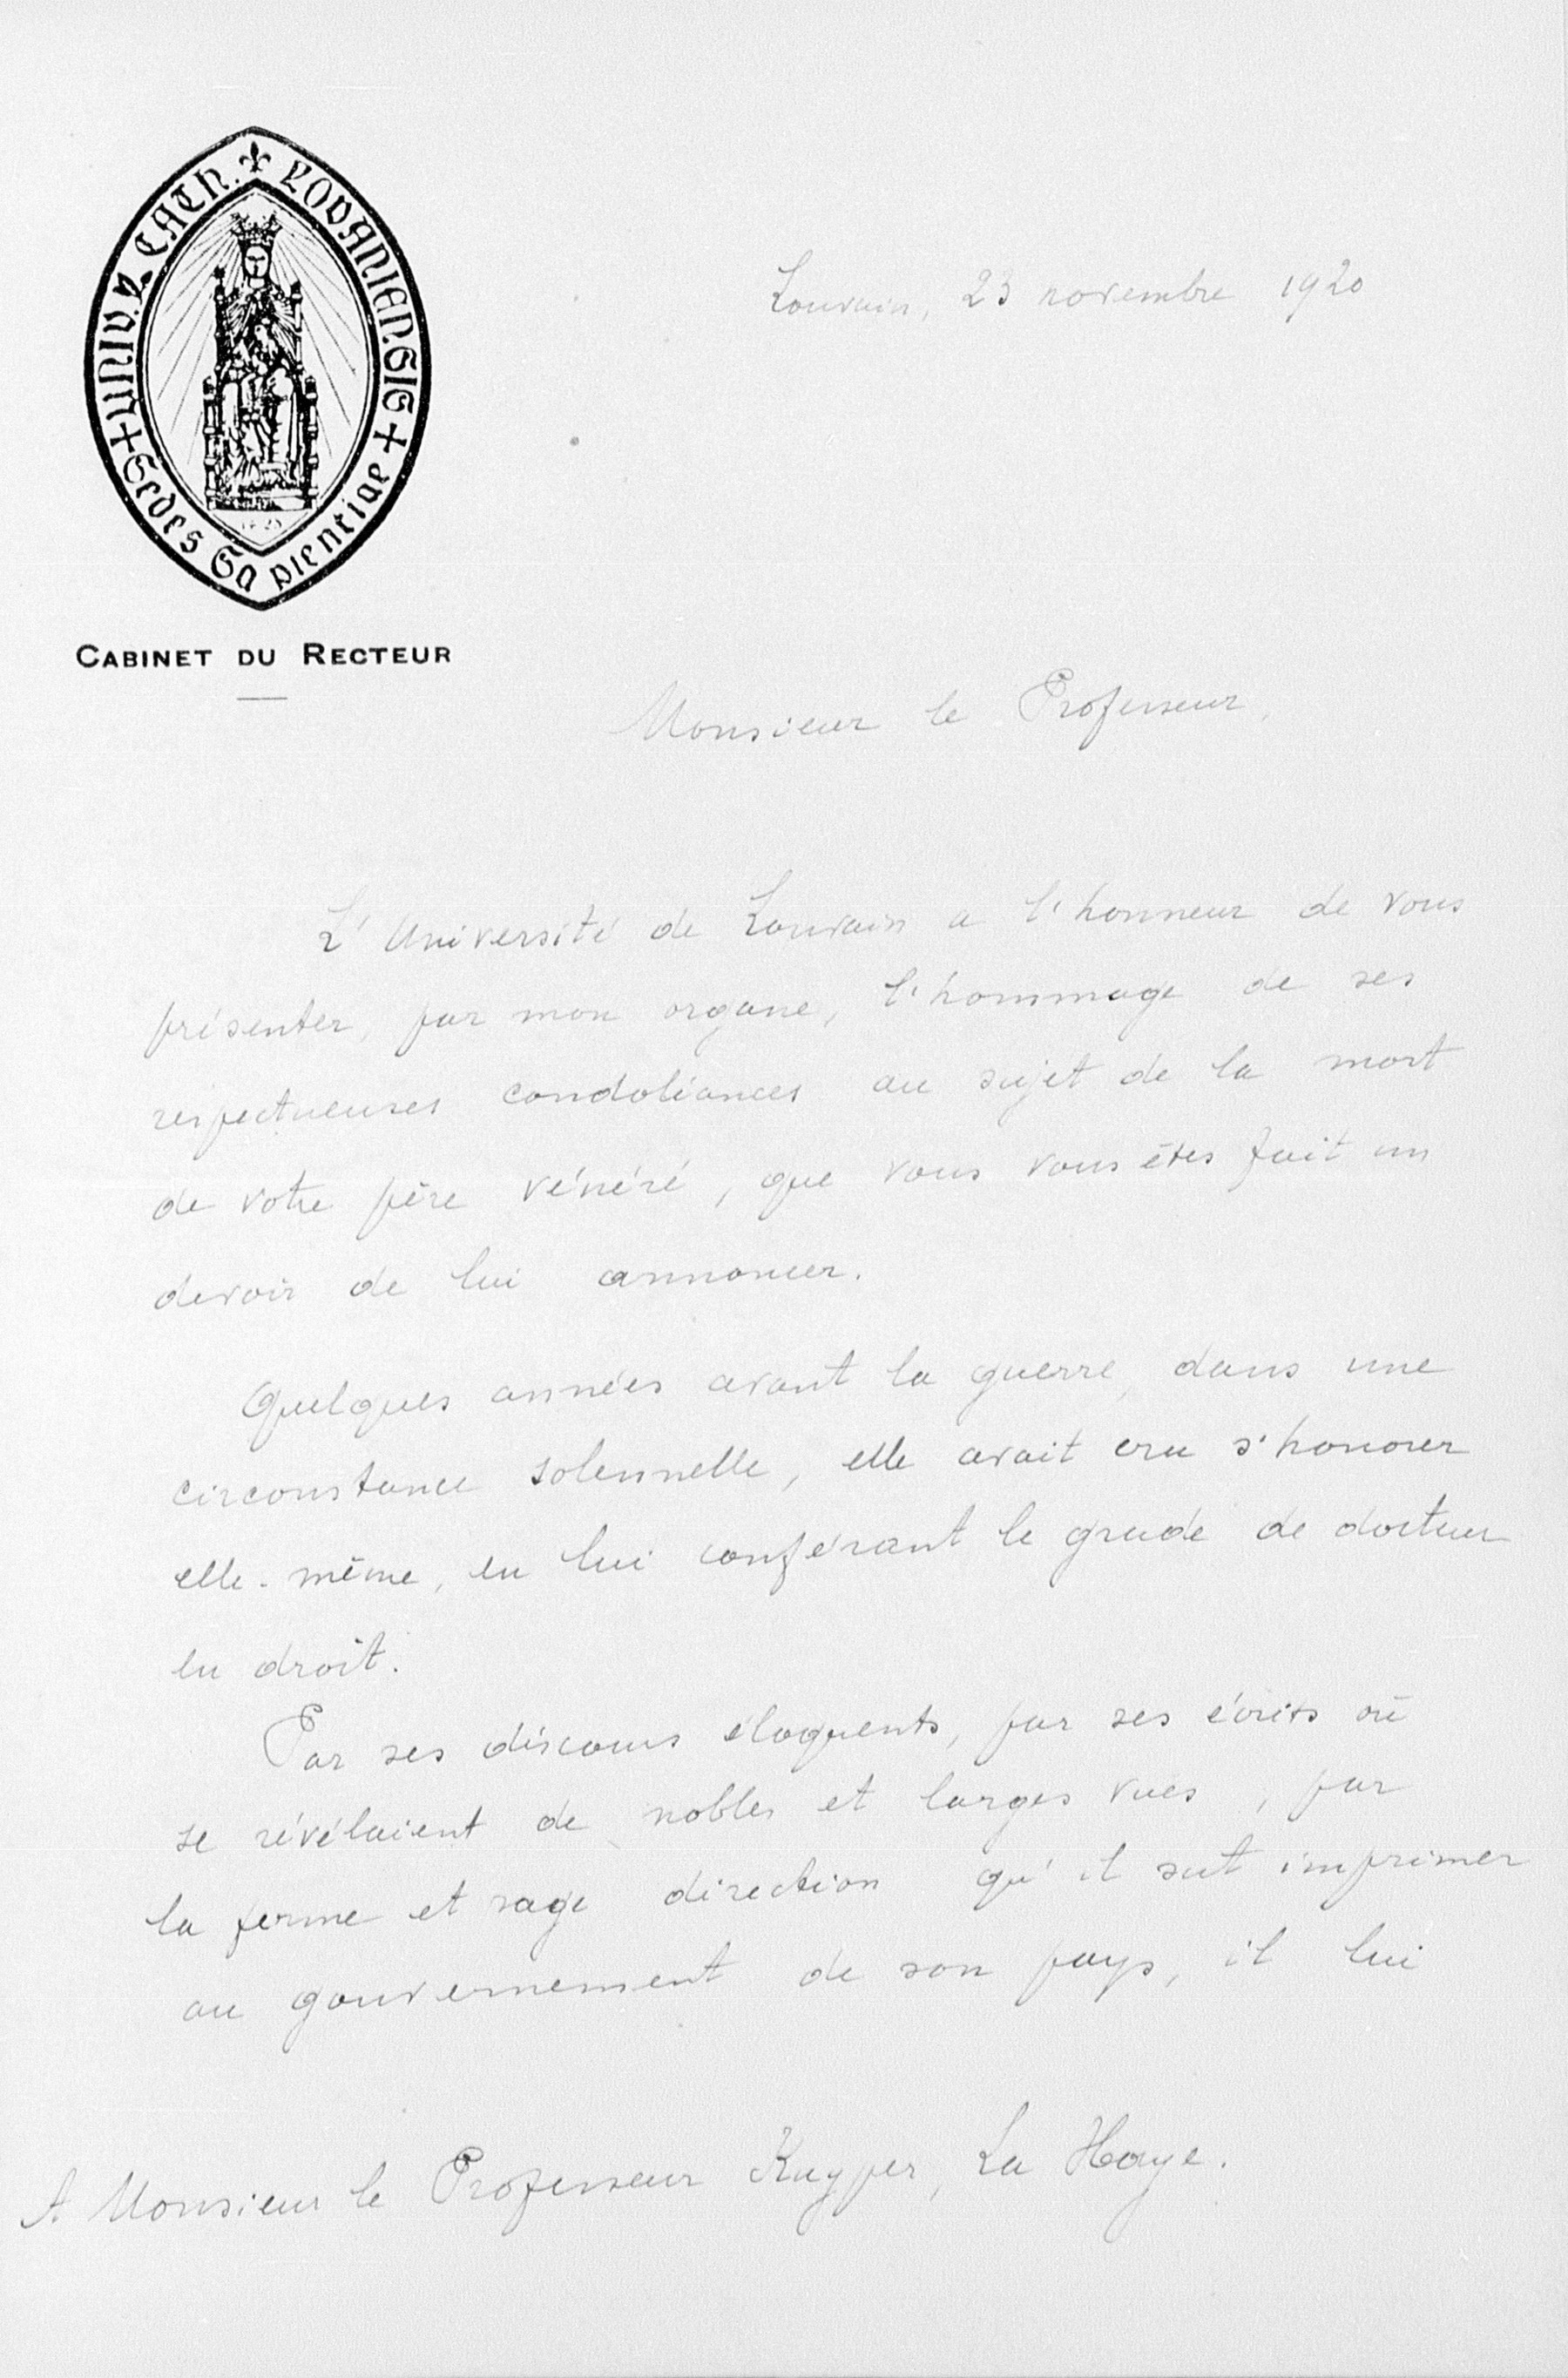 UNIV. CATH. LOVANIENSIS
Sedes Sapientiae
CABINET DU RECTEUR
Louvain, 23 novembre 1920
Monsieur le Professeur,
L'Université de Louvain a l'honneur de vous
présenter, par mon organe, l'hommage de ses
respectueuses condoléances au sujet de la mort
de votre père vénéré, que vous vous êtes fait un
devoir de lui annoncer.
Quelques années avant la guerre, dans une
circonstance solennelle, elle avait cru s'honorer
elle-même, en lui conférant le grade de docteur
en droit.
Par ses discours éloquents, par ses écrits où
se révélaient de nobles et larges vues, par
la ferme et sage direction qu'il sut imprimer
au gouvernement de son pays, il lui
A Monsieur le Professeur Kuyper, La Haye.